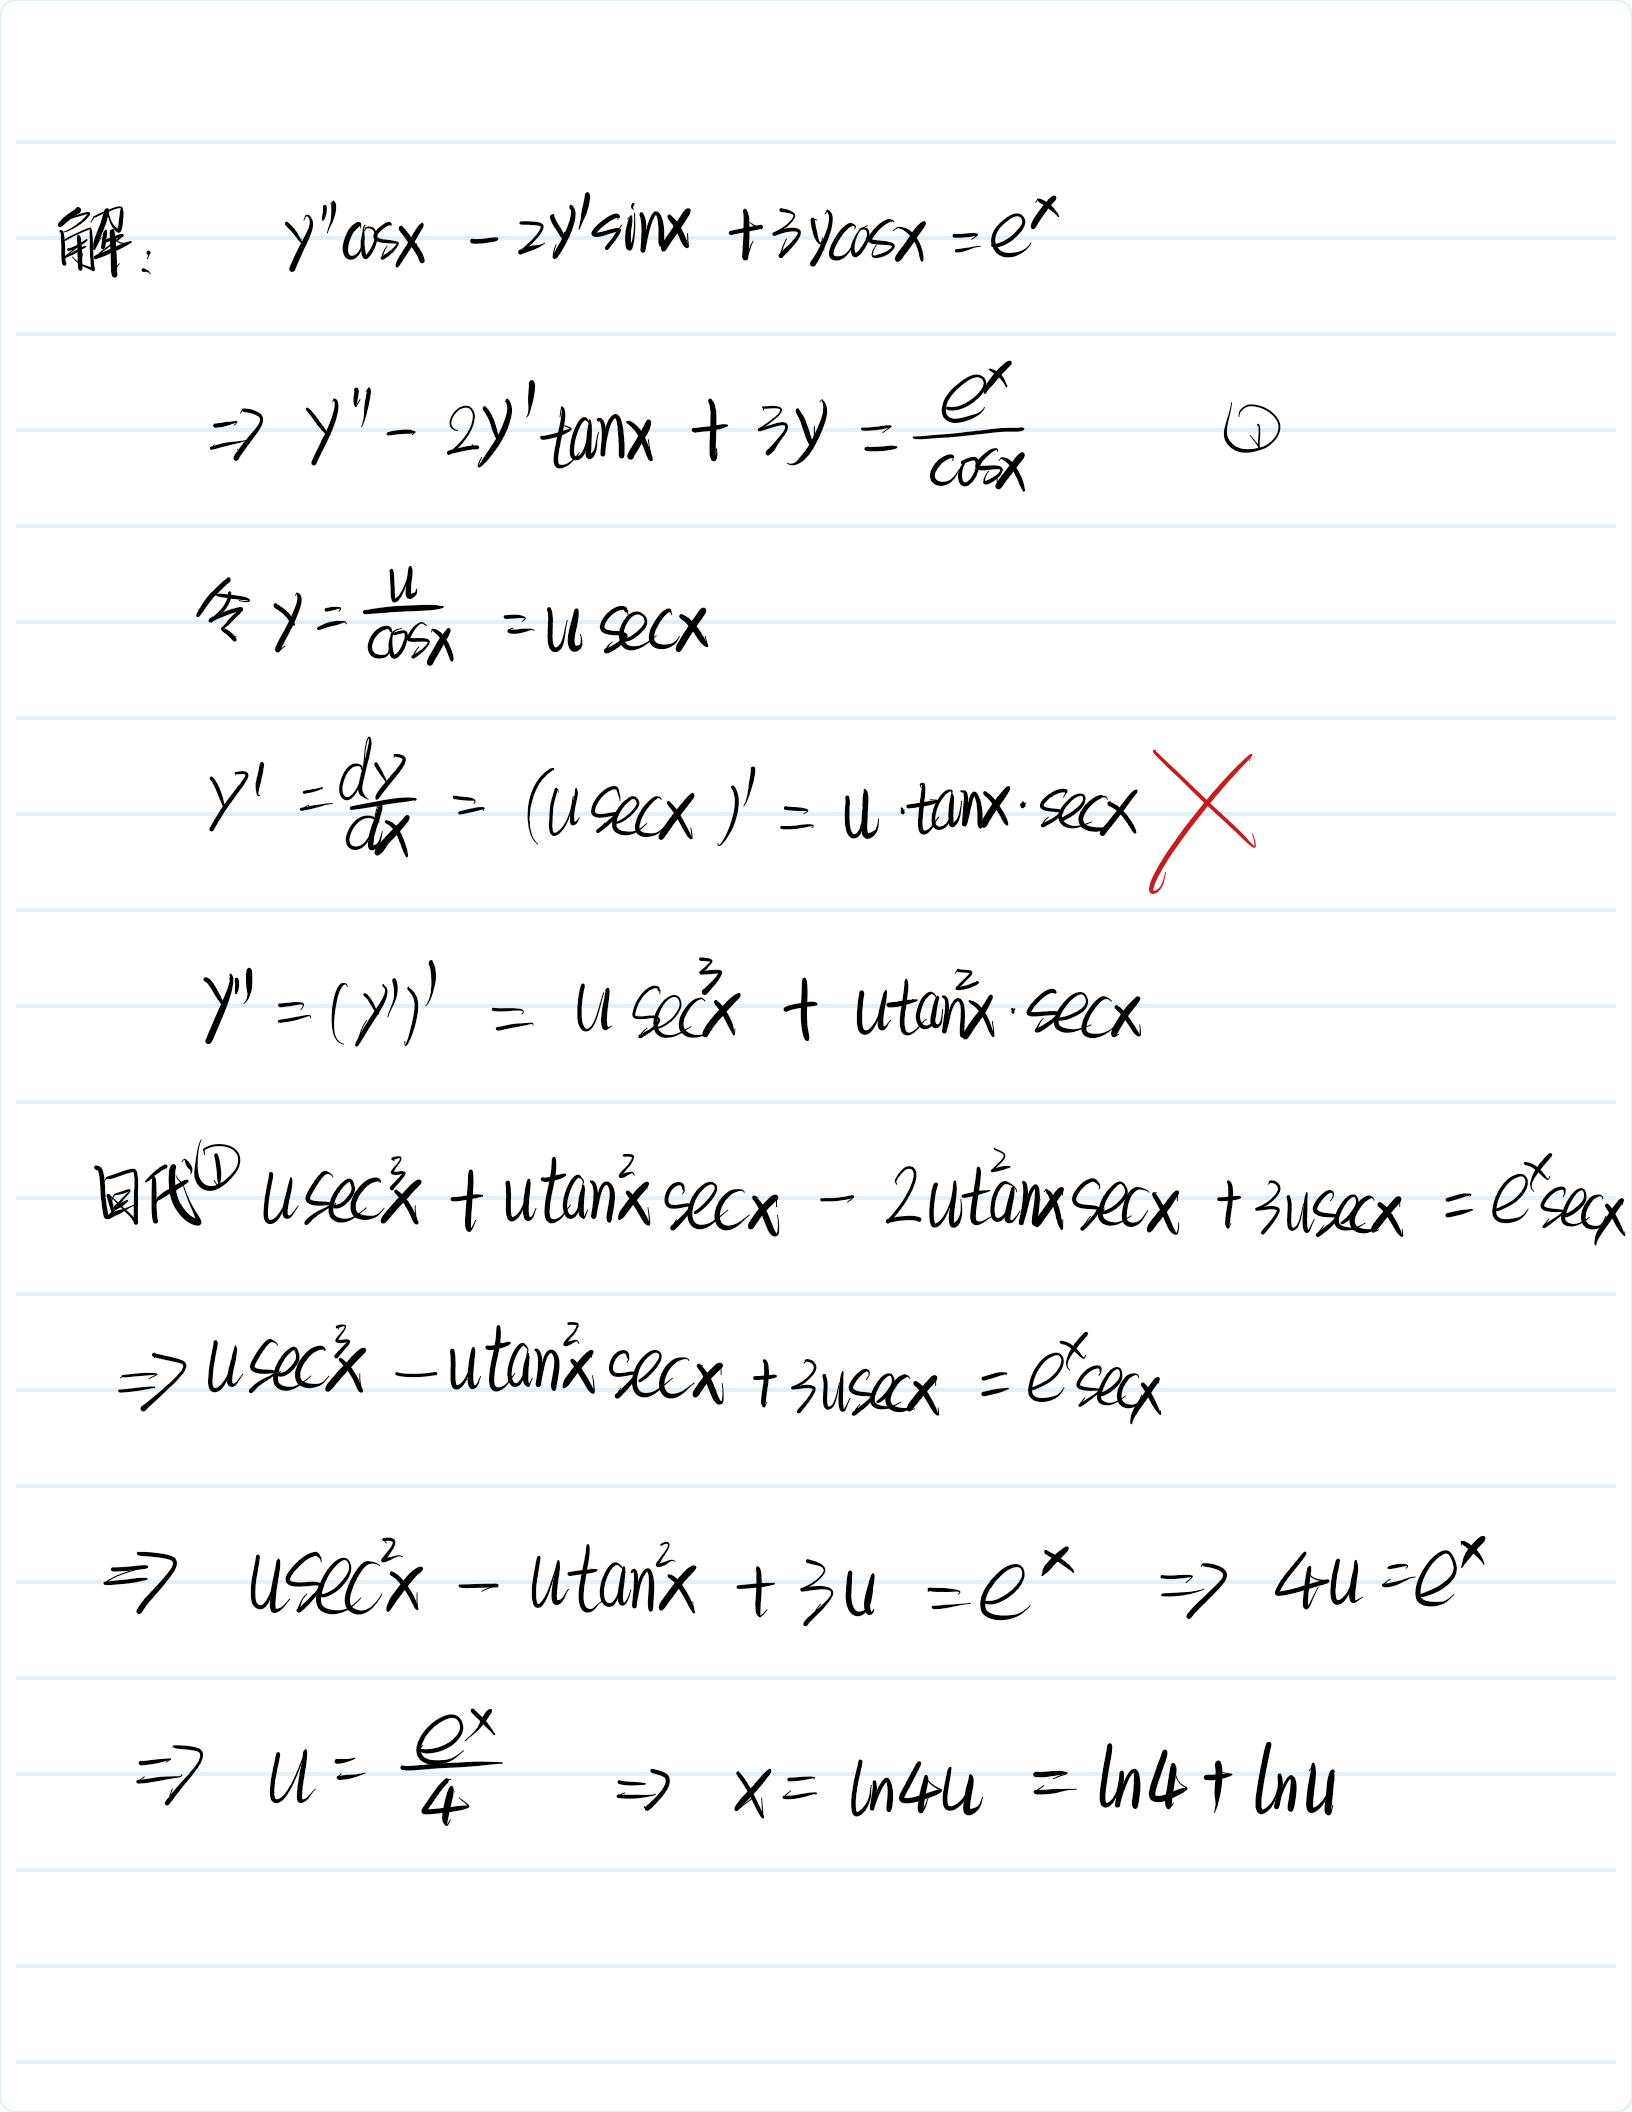 解: y''cosx - 2y'sinx + 3ycosx = e^x
⇒ y'' - 2y'tanx + 3y = e^x/cosx ①
令 y = u/cosx = u secx
y' = dy/dx = (u secx)' = u·tanx·secx ×
y'' = (y')' = u sec³x + utan²x·secx
回代① usec³x + utan²x secx - 2utan²x secx + 3usecx = e^x secx
⇒ usec³x - utan²x secx + 3usecx = e^x secx
⇒ usec²x - utan²x + 3u = e^x ⇒ 4u = e^x
⇒ u = e^x/4 ⇒ x = ln4u = ln4 + lnu